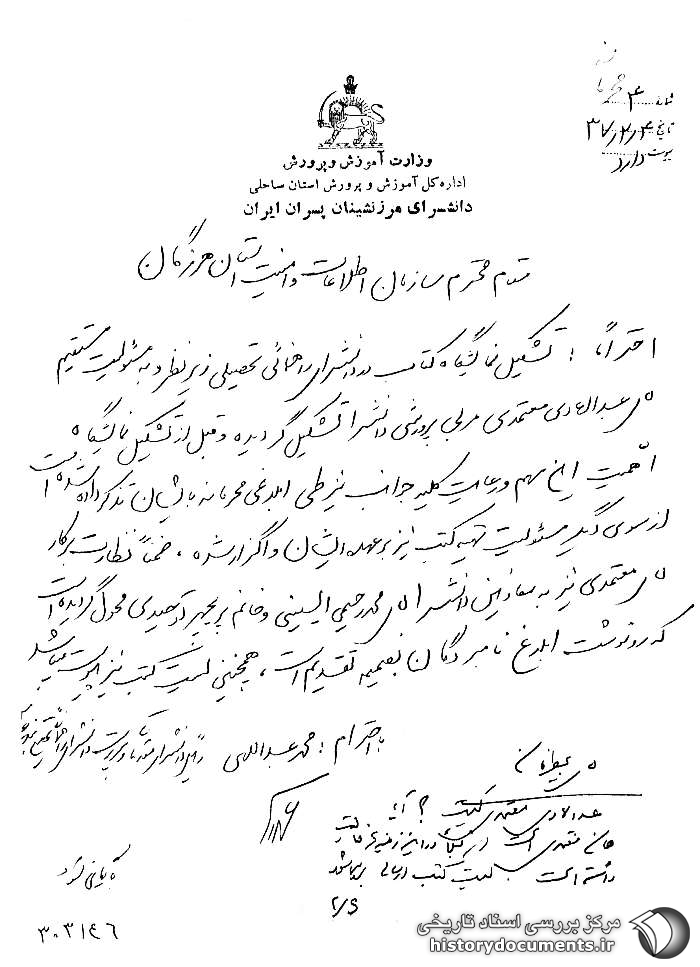 محرمانه
شماره ۴ محرمانه
تاریخ ۳۷/۲/۴
پیوست دارد
وزارت آموزش و پرورش
اداره کل آموزش و پرورش استان ساحلی
دانشسرای مرزنشینان پسران ایران
مقام محترم سازمان اطلاعات و امنیت استان هرمزگان
احتراماً: تشکیل نمایشگاه کتاب در دانشسرای راهنمائی تحصیلی زیر نظر و به مسئولیت مستقیم
آقای عبدالهادی معتمدی مربی پرورشی دانشسرا تشکیل گردیده و قبل از تشکیل نمایشگاه
اهمیت این مهم و رعایت کلیه جوانب نیز طی ابلاغی محرمانه بایشان تذکر داده شده است
از سوی دیگر مسئولیت تهیه کتب نیز بر عهده ایشان واگزار شده، ضمناً نظارت بر کار
آقای معتمدی نیز به معاونین دانشسرا آقای محمد رحیمی الحسینی و خانم پریچهر توحیدی محول گردیده است
که رونوشت ابلاغ نامبردگان بضمیمه تقدیم است، همچنین لیست کتب نیز پیوست میباشد
با احترام: محمد عبداللهی
آقای
عبدالهادی معتمدی کیست؟ آیا
همان معتمدی است که در این زمینه فعالیت
داشته است لیست کتب بررسی شود
۲/۶
بایگانی شود
۳۰۳۱۴۶
مرکز بررسی اسناد تاریخی
historydocuments.ir